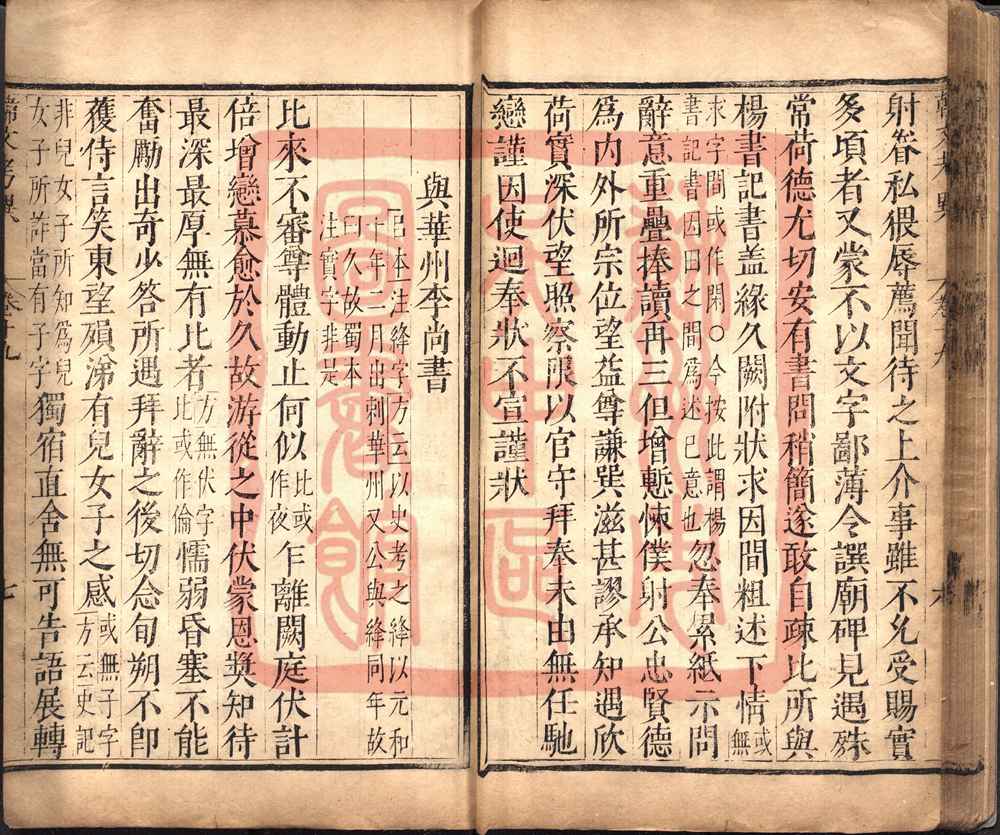 射眷私猥辱薦聞待之上介事雖不允受賜實
多頃者又蒙不以文字鄙薄令譔廟碑見遇殊
常荷德尤切安有書問稍簡遂敢自疎比所與
楊書記書盖緣久闕附狀求因間粗述下情或無
求字間或作閑○今按此謂楊
書記書因田之間爲述已意也忽奉累紙示問
辭意重疊捧讀再三但增慙悚僕射公忠賢德
爲内外所宗位望益尊謙巽滋甚謬承知遇欣
荷實深伏望照察限以官守拜奉未由無任馳
戀謹因使迴奉狀不宣謹狀
與華州李尚書
呂本注絳字方云以史考之絳以元和
十年二月出刺華州又公與絳同年故
曰久故蜀本
注實字非是
比來不審尊體動止何似比或作夜乍離闕庭伏計
倍增戀慕愈於久故游從之中伏蒙恩奬知待
最深最厚無有比者方無伏字比或作倫懦弱昏塞不能
奮勵出奇少答所遇拜辭之後切念旬朔不卽
獲侍言笑東望殞涕有兒女子之感或無子字方云史記
非兒女子所知爲兒
女子所詐當有子字獨宿直舍無可告語展轉
韓文考異
卷十九
七